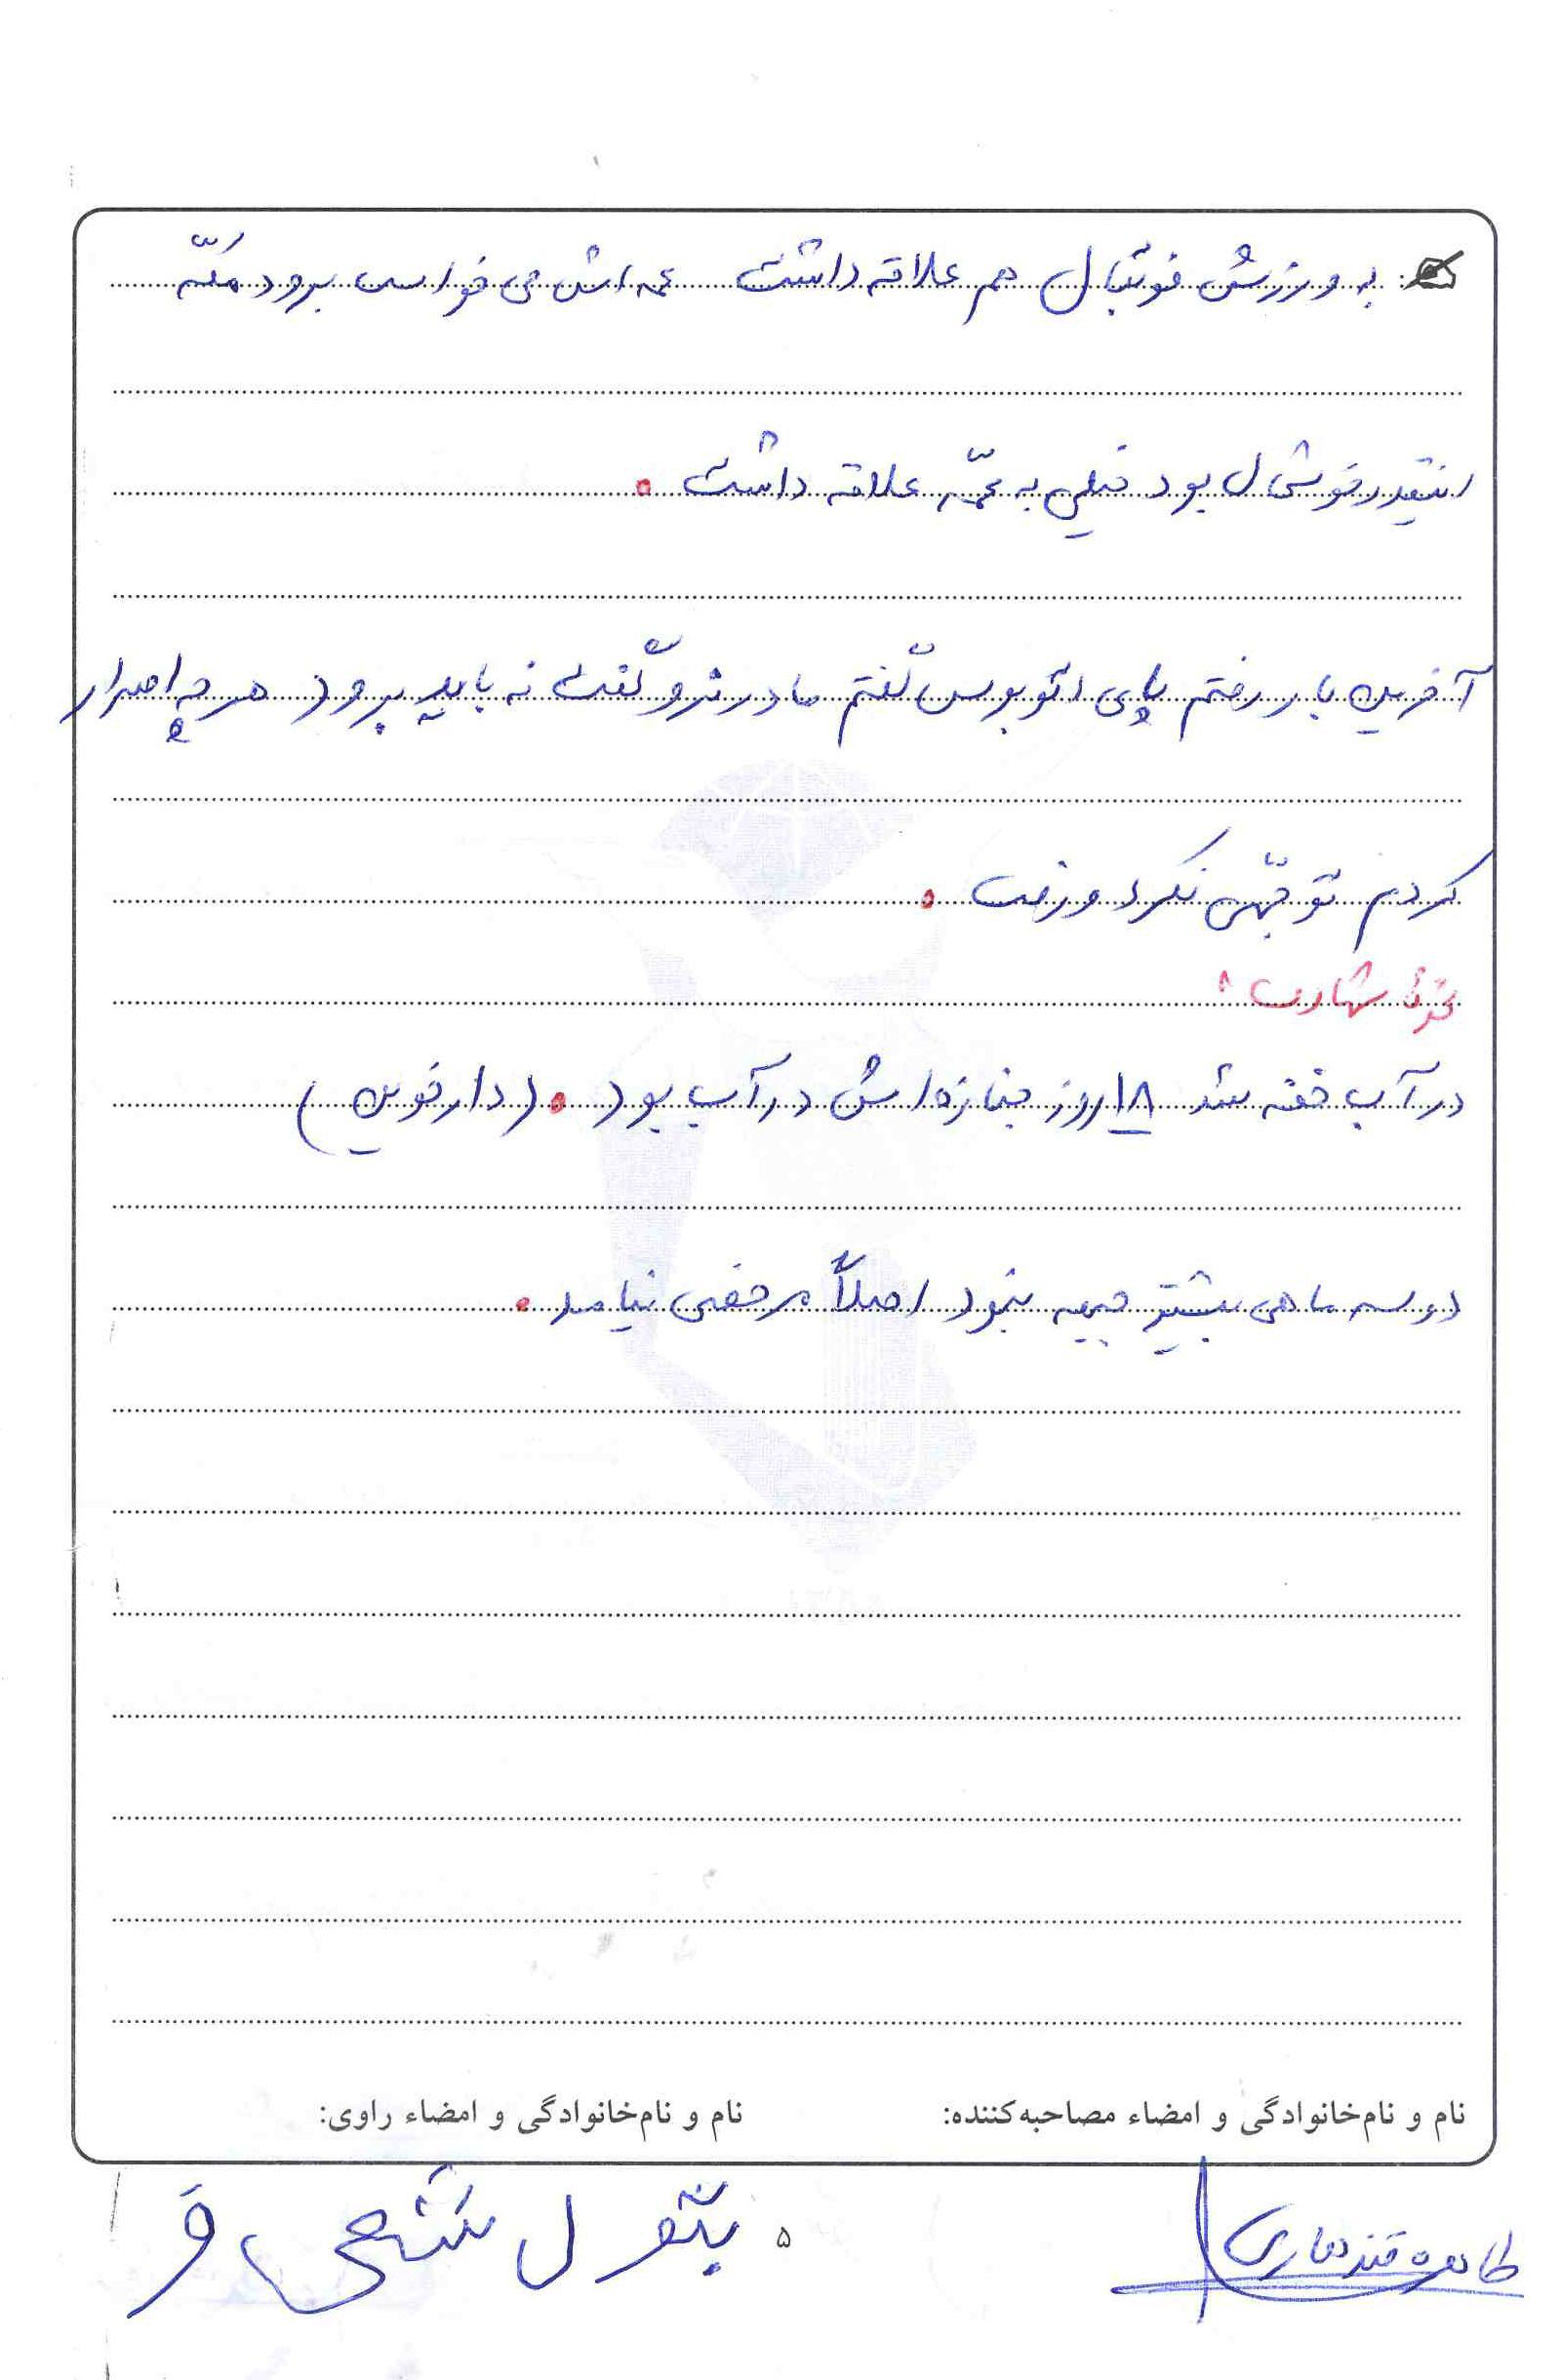 به ورزش فوتبال هم علاقه داشت عمه اش می خواست برود مکّه
اینقدر خوشحال بود خیلی به عمّه علاقه داشت .
آخرین بار رفتم پای اتوبوس گفتم مادر نرو گفت نه باید بروم هر چه اصرار
کردم توجّهی نکرد و رفت .
نحوۀ شهادت :
در آب خفه شد ۱۸ روز جنازه اش در آب بود . ( دارخوین )
دو سه ماهی بیشتر جبهه نبود اصلاً مرخصی نیامد .
نام و نام‌خانوادگی و امضاء مصاحبه‌کننده:
نام و نام‌خانوادگی و امضاء راوی:
طاهره قندهاری
۵
بتول